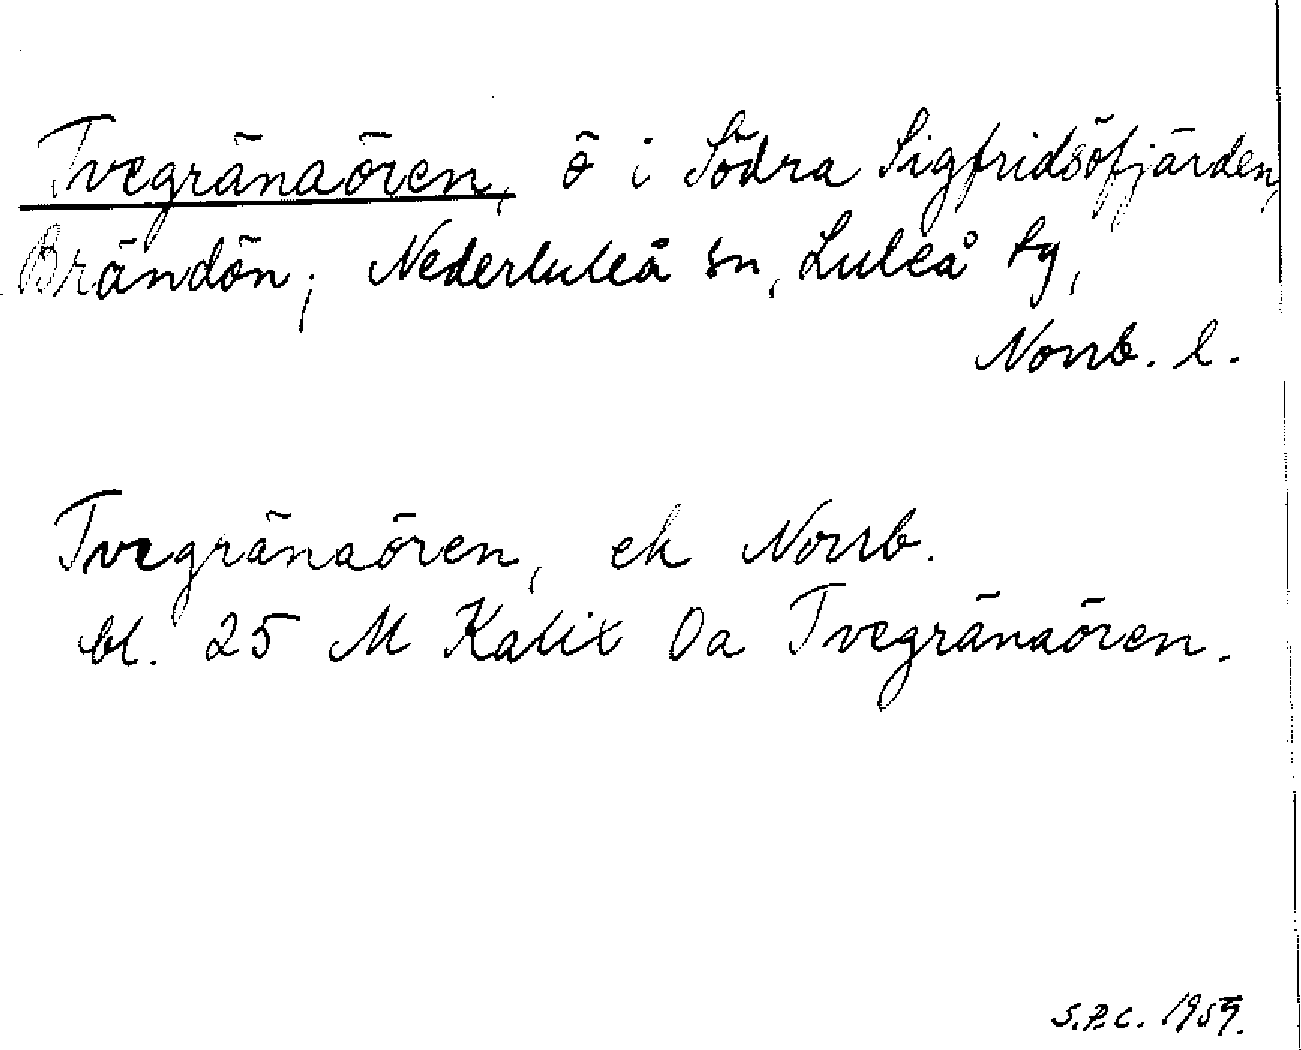 Tvegränaören, ö i Södra Sigfridsöfjärden,
Brändön, Nederluleå sn, Luleå tg,
Norrb. l.
Tvegränaören, ek Norrb.
bl. 25 M Kalix Oa Tvegränaören.
S.P.C. 1959.